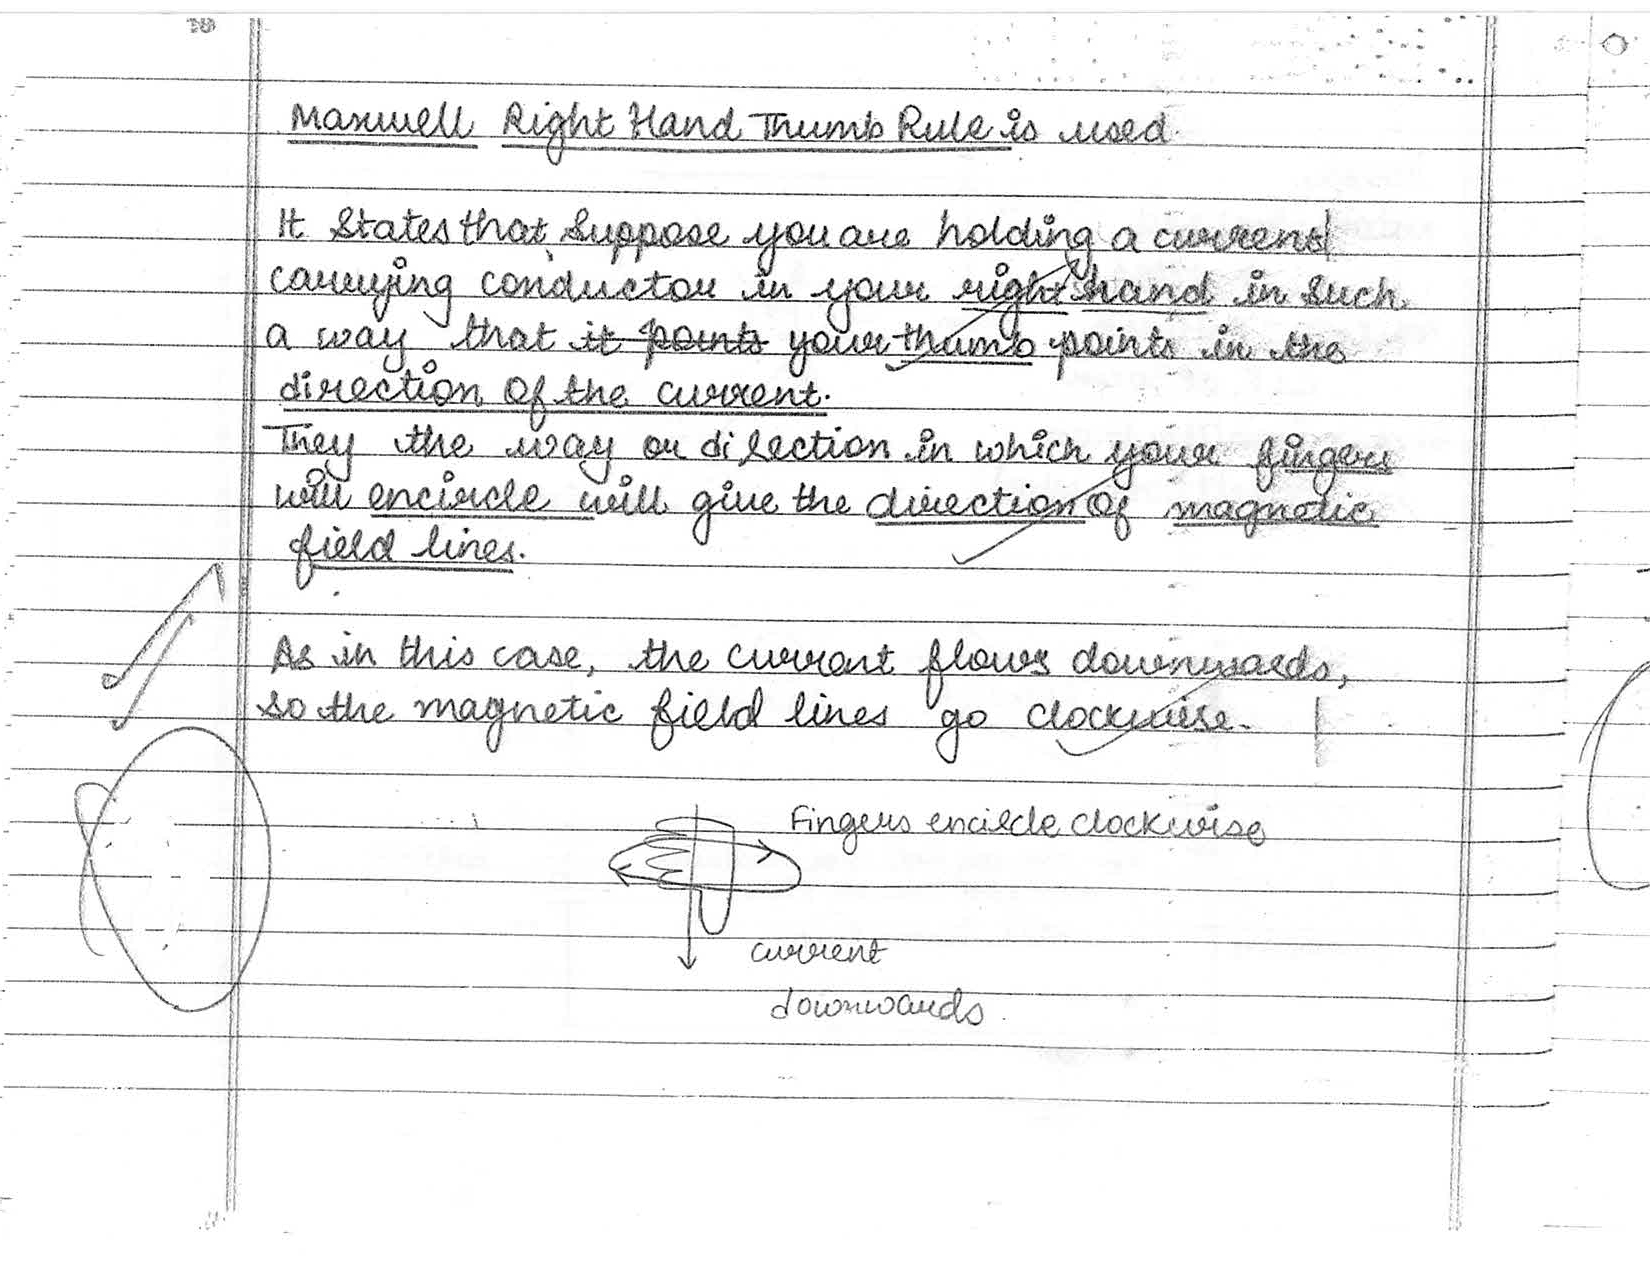 Maxwell Right Hand Thumb Rule is used.
It States that, Suppose you are holding a current
carrying conductor in your right hand in such
a way that it points your thumb points in the
direction of the current.
They the way or direction in which your fingers
will encircle will give the direction of magnetic
field lines.
As in this case, the current flows downwards,
so the magnetic field lines go clockwise.
Fingers encircle clockwise
current
downwards.